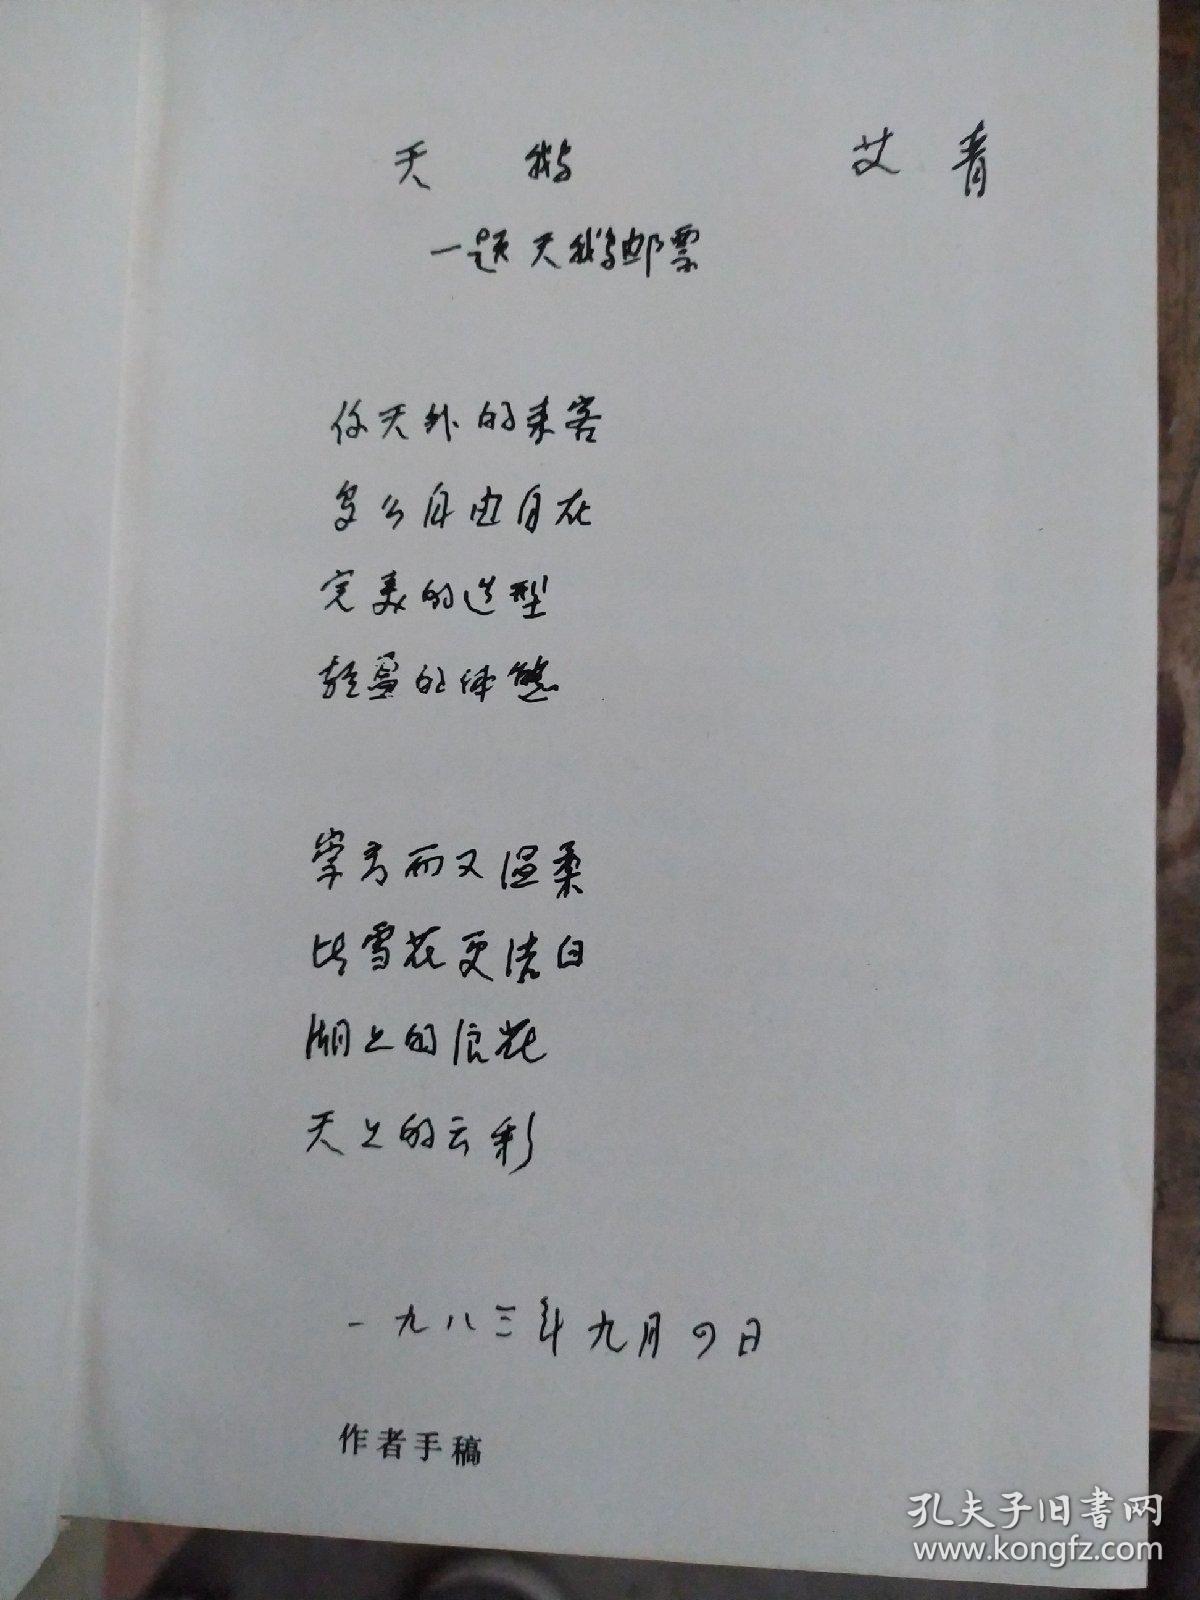 天鹅 艾青
一题天鹅邮票
你天外的来客
多么自由自在
完美的造型
轻盈的体态
崇高而又温柔
比雪花更洁白
湖上的浪花
天上的云彩
一九八三年九月四日
作者手稿
孔夫子旧书网
www.kongfz.com